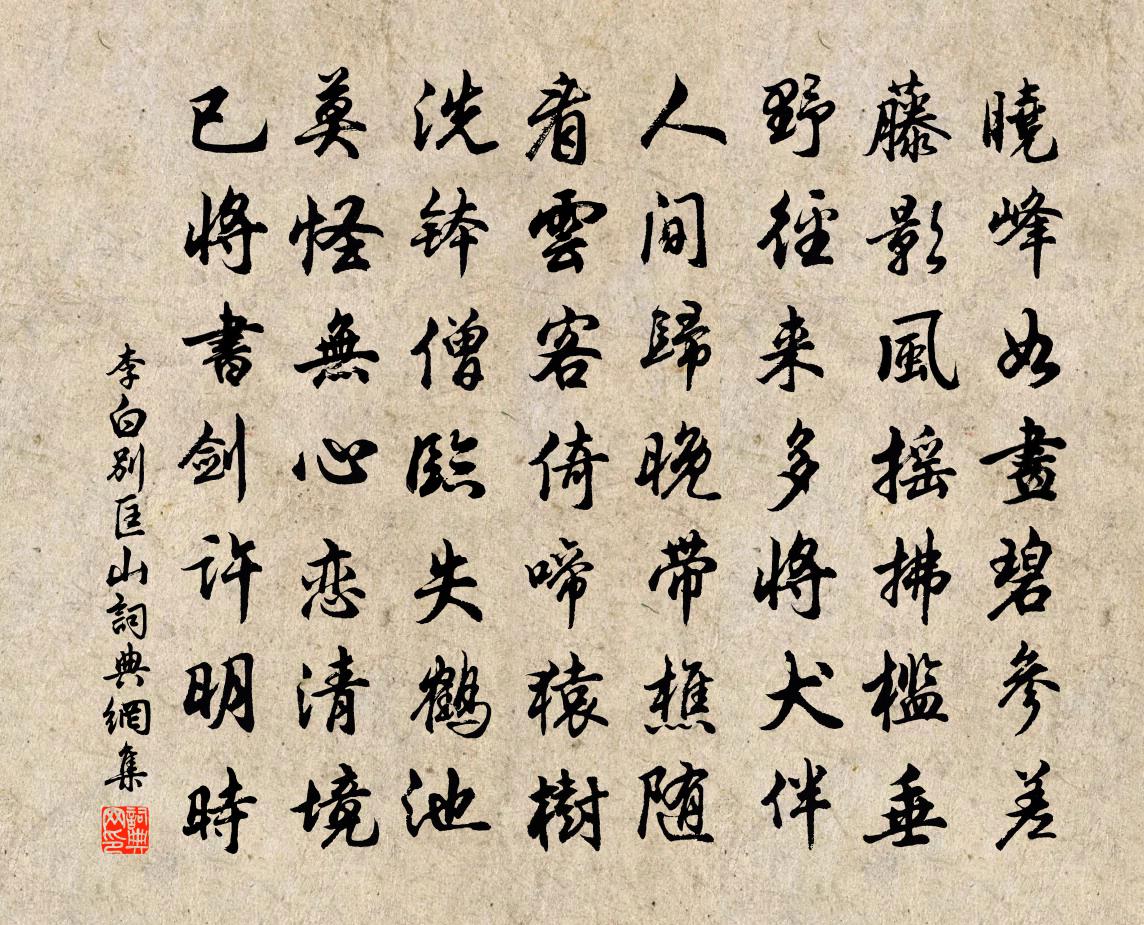 曉峰如畫碧參差
藤影風摇拂檻垂
野徑来多將犬伴
人間歸晚帶樵随
看雲客倚啼猿樹
洗鉢僧臨失鶴池
莫怪無心恋清境
已將書劍許明時
李白別匡山詞典網集
詞典网印